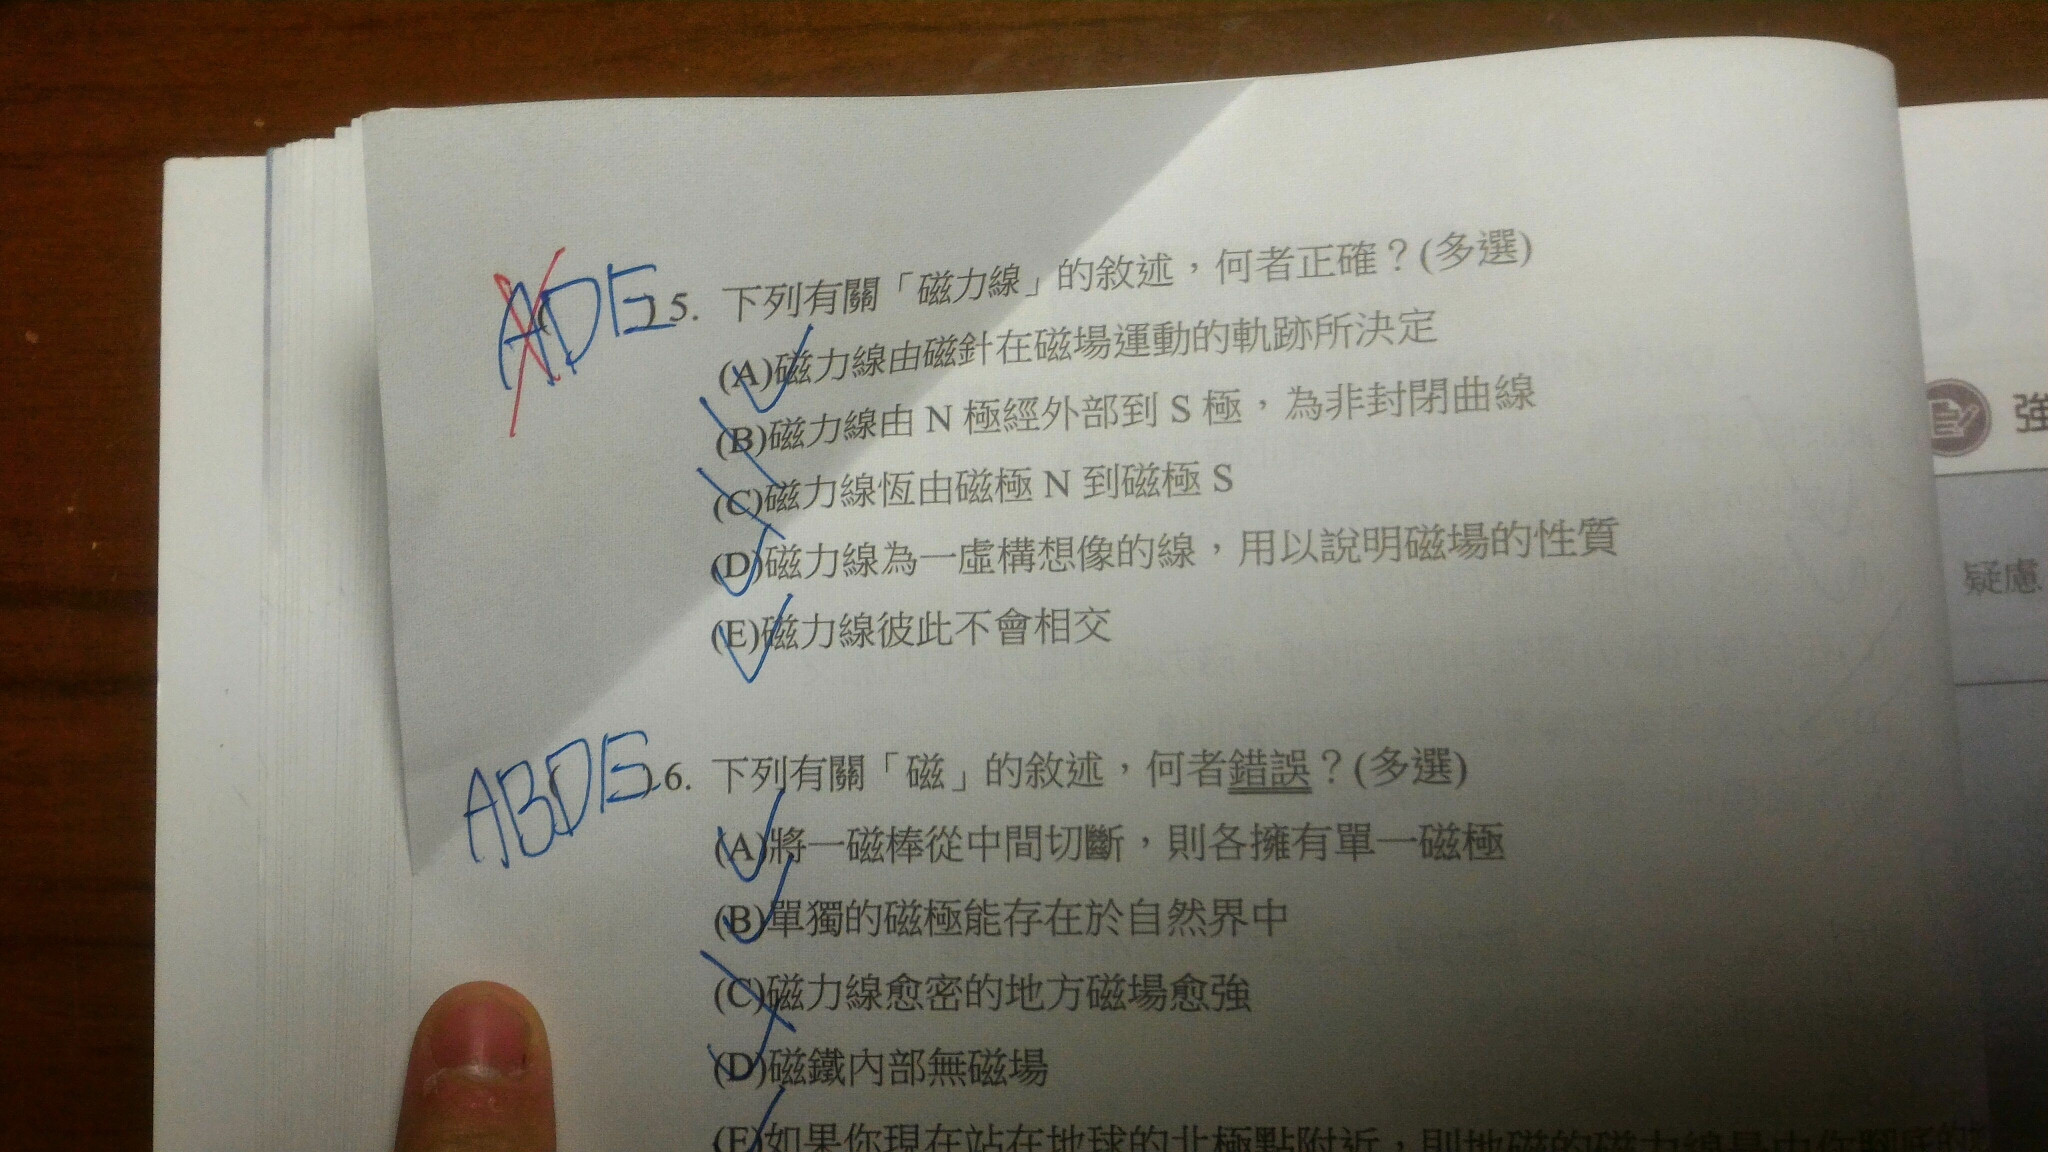 ADE
( )5. 下列有關「磁力線」的敘述，何者正確？(多選)
(A)磁力線由磁針在磁場運動的軌跡所決定
(B)磁力線由 N 極經外部到 S 極，為非封閉曲線
(C)磁力線恆由磁極 N 到磁極 S
(D)磁力線為一虛構想像的線，用以說明磁場的性質
(E)磁力線彼此不會相交
ABDE
( )6. 下列有關「磁」的敘述，何者錯誤？(多選)
(A)將一磁棒從中間切斷，則各擁有單一磁極
(B)單獨的磁極能存在於自然界中
(C)磁力線愈密的地方磁場愈強
(D)磁鐵內部無磁場
(E)如果你現在站在地球的北極點附近，則地磁的磁力線是由你腳底的
強
疑慮